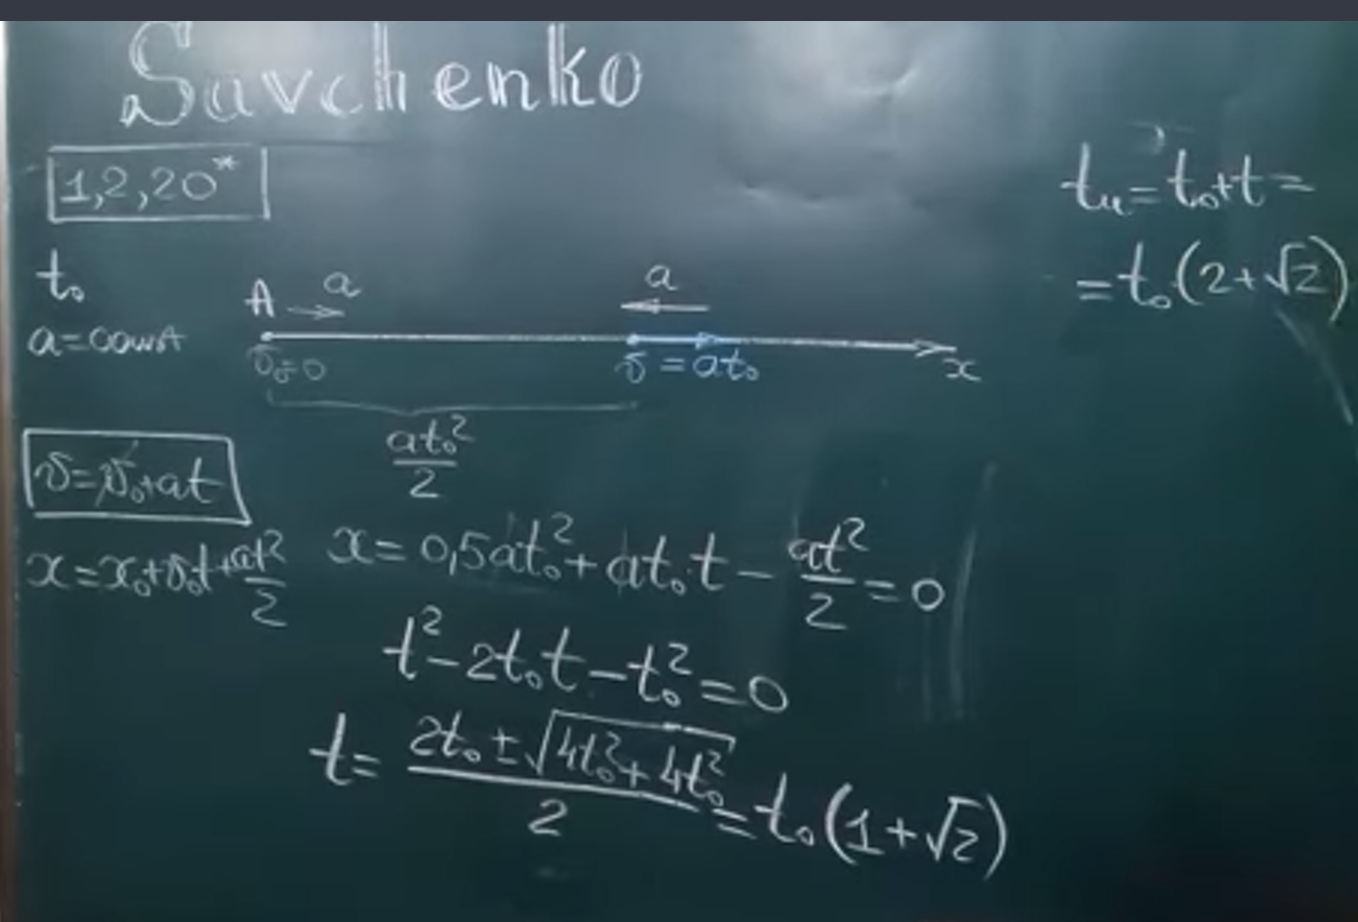 Savchenko
1,2,20*
t₀
a=const
A a a
v₀=0 v=at₀ x
at₀²/2
v=v₀+at
x=x₀+v₀t+at²/2
x=0,5at₀²+at₀t-at²/2=0
t²-2t₀t-t₀²=0
t=(2t₀±√(4t₀²+4t₀²))/2=t₀(1+√2)
t =t₀+t=
=t₀(2+√2)